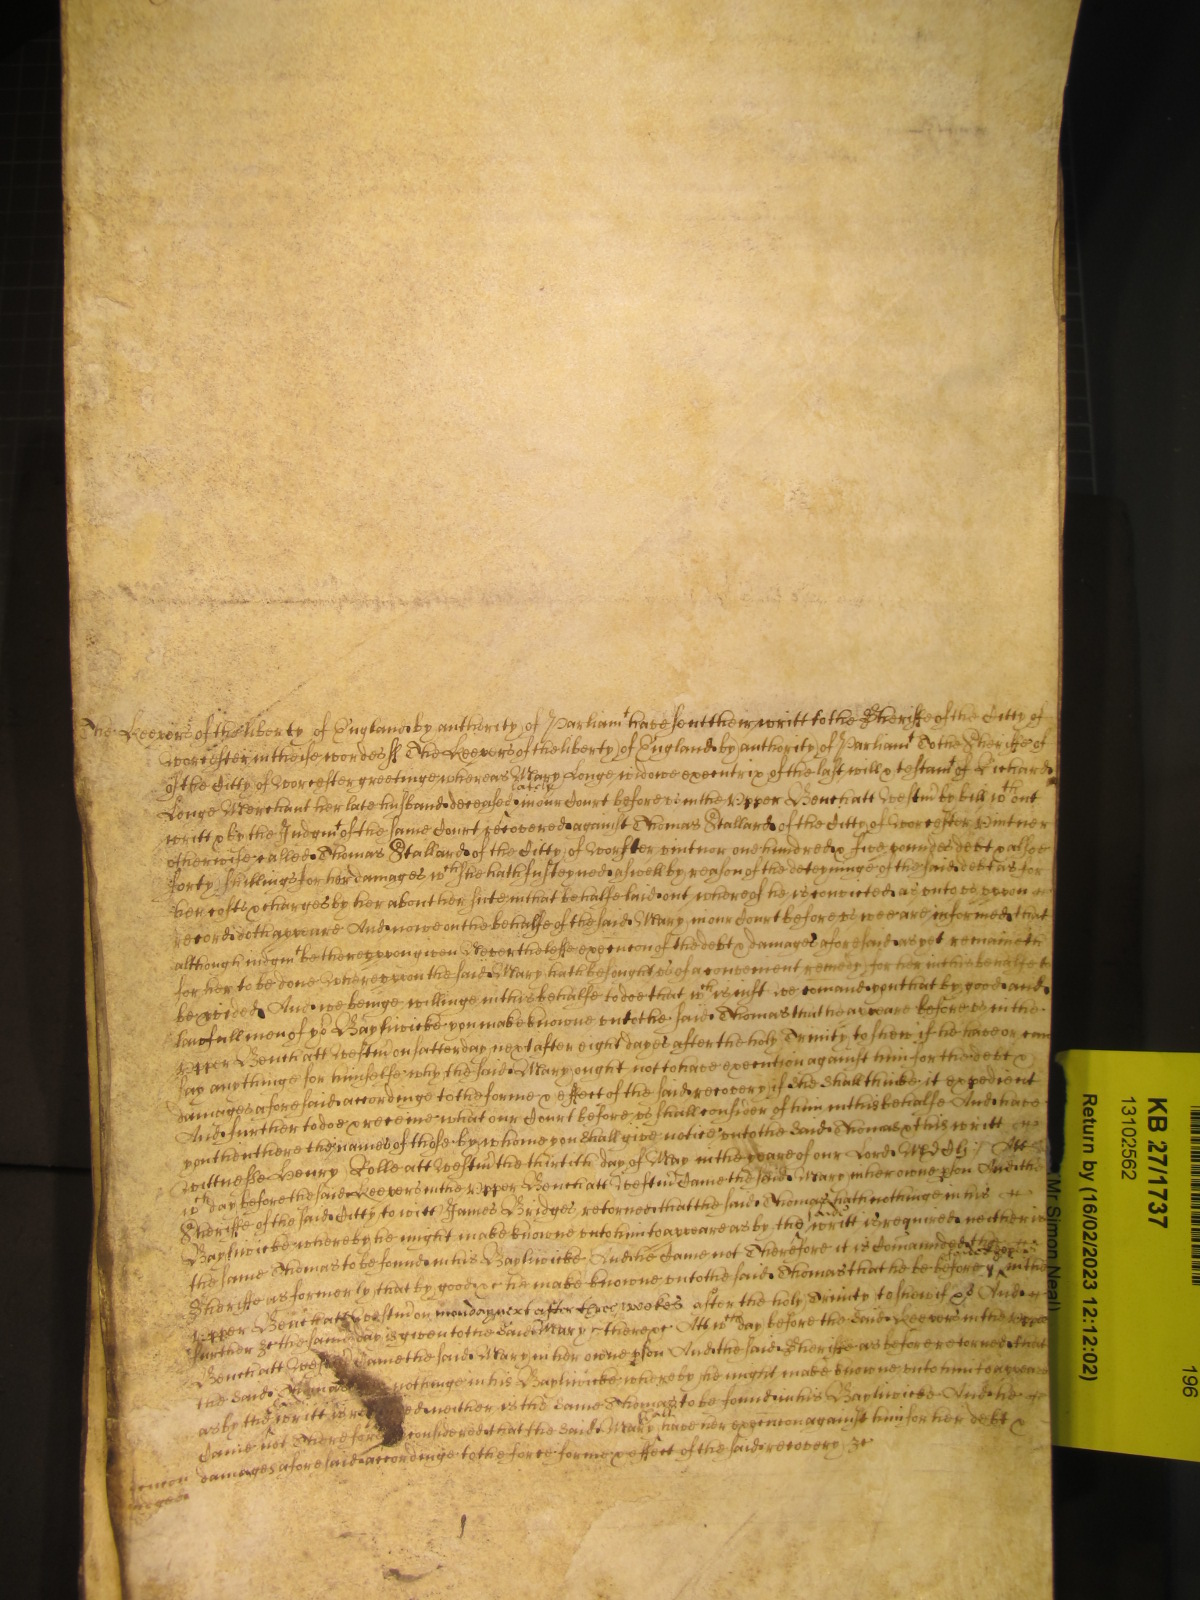 The Keepers of the liberty of England by authority of Parliamt have sent their writt to the Sheriffe of the Citty of
Worcester in theise wordes ss The Keepers of the liberty of England by authority of Parliamt To the Sheriffe of
of the Citty of Worcester greetinge whereas Mary Longe widowe executrix of the last will & testamt of Richard
Longe Merchant her late husband deceased lately in our Court before us in the Upper Bench att Westmr by bill wthout
writt & by the Judgmt of the same Court recovered against Thomas Stallard of the Citty of Worcester vintner
otherwise called Thomas Stallard of the Citty of Worster vintnor one hundred & five poundes debt & alsoe
forty shillings for her damages wch she hath susteyned aswell by reason of the deteyninge of the said debt as for
her costs & charges by her about her suite in that behalfe laid out whereof he is convicted as unto us uppon
record doth appeare And nowe on the behalfe of the said Mary in our Court before us wee are informed that
although iudgmt be thereuppon given Neverthelesse execucon of the debt & damages aforesaid as yet remaineth
for her to be done whereuppon the said Mary hath besought us of a convenient remedy for her in this behalfe to
be p[ro]vided And we beinge willinge in this behalfe to doe that wch is iust we comand you that by good and
lawfull men of yor Bayliwicke you make knowne unto the said Thomas that he appeare before us in the
Upper Bench att Westmr on satterday next after eight dayes after the holy Trinity to shew if he have or can
say any thinge for himselfe why the said Mary ought not to have execution against him for the debt &
damages aforesaid accordinge to the forme & effect of the said recovery if she shall thinke it expedient
And further to doe & receive what our Court before us shall consider of him in this behalfe And have
you then there the names of those by whome you shall give notice unto the said Thomas & this writt
wittnesse Henry Rolle att Westmr the thirtith day of May in the yeare of our Lord Att
wch day before the said Keepers in the Upper Bench att Westmr came the said Mary in her owne p[er]son And the
Sheriffe of the said Citty to witt James Bridges retorned that the said Thomas hath nothinge in his
Bayliwicke whereby he might make knowne unto him to appeare as by the said writt is required neither is
the same Thomas to be found in his Bayliwicke And he came not Therefore it is comanded the
Sheriffe as formerly that by good &c he make knowne unto the said Thomas that he be before in the
Upper Bench att Westmr on monday next after three weekes after the holy Trinity to shew if &c And
further &c the same day is given to the said Mary there &c Att wch day before the said Keepers in the Upper
Bench att Westmr came the said Mary in her owne p[er]son And the said Sheriffe as before retorned that
the said Thomas nothinge in his Bayliwicke whereby he might make knowne unto him to appeare
as by the said writt is neither is the same Thomas to be found in his Bayliwicke And he
came not Therefore considered that the said Mary have her execucon against him for her debt &
damages aforesaid accordinge to the force forme & effect of the said recovery &c
KB 27/1737
13102562
Return by (16/02/2023 12:12:02)
Mr Simon Neal)
196